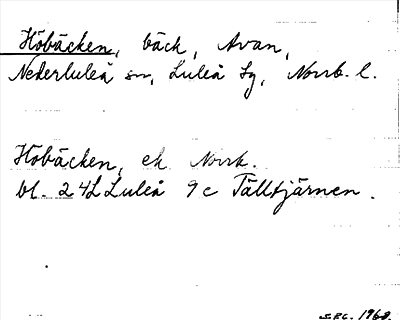 Höbäcken, bäck, Avan,
Nederluleå sn, Luleå tg, Norrb. l.
Höbäcken, ek. Norrk.
bl. 24L Luleå 9c Tälltjärnen.
1968.